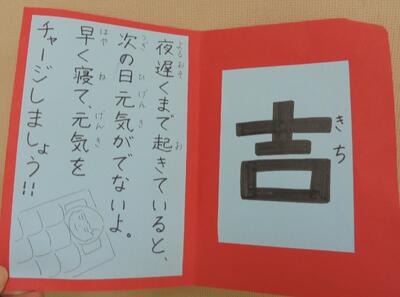 吉
きち
夜遅くまで起きていると、
よるおそ お
次の日元気がでないよ。
つぎ ひ げんき
早く寝て、元気を
はや ね げんき
チャージしましょう!!